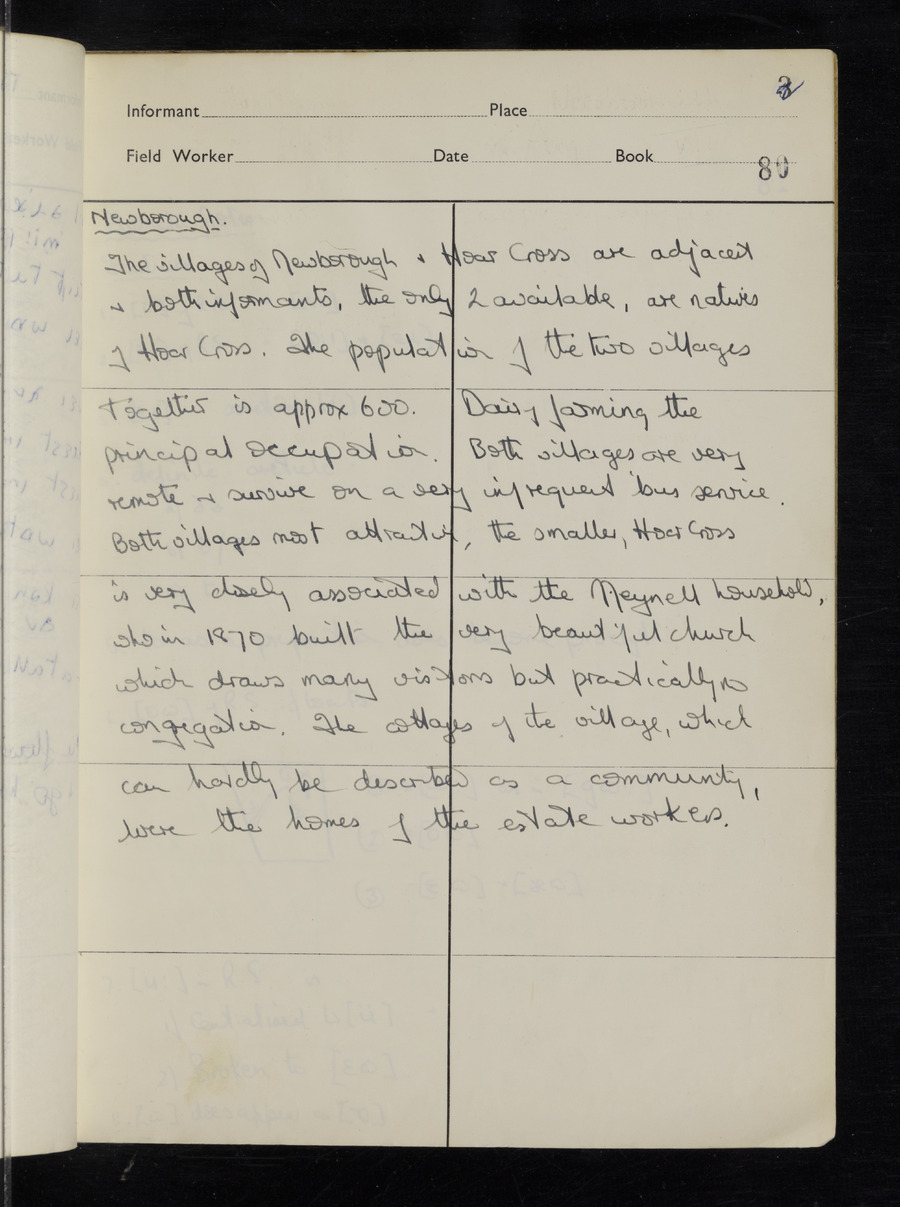 Informant Place
Field Worker Date Book
80
Newborough.
The villages of Newborough & Hoar Cross are adjacent
& both informants, the only 2 available, are natives
of Hoar Cross. The population of the two villages
together is approx 600. Dairy farming the
principal occupation. Both villages are very
remote & survive on a very infrequent bus service.
Both villages most attractive, the smaller, Hoar Cross
is very closely associated with the Meynell household,
who in 1870 built the very beautiful church
which draws many visitors but practically no
congegation. The cottages of the village, which
can hardly be described as a community,
were the homes of the estate workers.